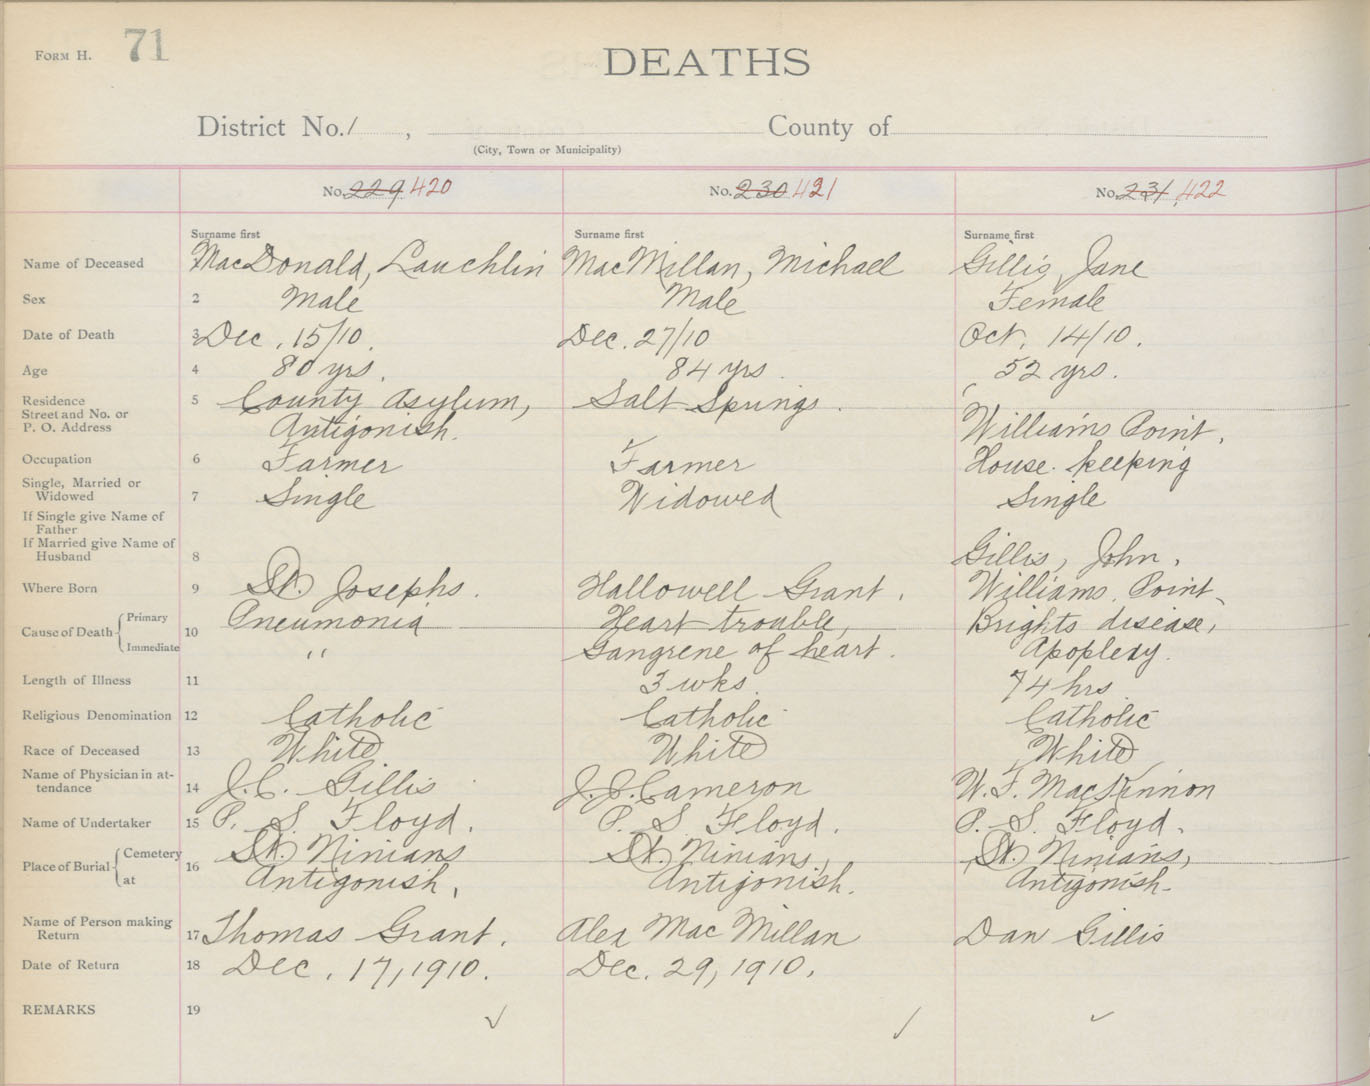 FORM H. 71
DEATHS
District No. 1 , County of
(City, Town or Municipality)
No. 229 420 No. 230 421 No. 231, 422
Surname first Surname first Surname first
Name of Deceased MacDonald, Lauchlin MacMillan, Michael Gillis, Jane
Sex 2 Male Male Female
Date of Death 3 Dec. 15/10. Dec. 27/10 Oct. 14/10.
Age 4 80 yrs. 84 yrs. 52 yrs.
Residence 5 County Asylum, Salt Springs.
Street and No. or
P. O. Address Antigonish. Williams Point,
Occupation 6 Farmer Farmer House keeping
Single, Married or
Widowed 7 Single Widowed Single
If Single give Name of
Father
If Married give Name of
Husband 8 Gillis, John.
Where Born 9 St. Josephs. Hallowell Grant. Williams Point
Cause of Death Primary 10 Pneumonia Heart trouble, Brights disease,
Immediate " Gangrene of heart. Apoplexy.
Length of Illness 11 3 wks. 74 hrs
Religious Denomination 12 Catholic Catholic Catholic
Race of Deceased 13 White White White
Name of Physician in at-
tendance 14 J.C. Gillis J.J. Cameron W.F. MacKinnon
Name of Undertaker 15 P. S. Floyd. P. S. Floyd. P. S. Floyd.
Place of Burial Cemetery 16 St. Ninians St. Ninians, St. Ninians,
at Antigonish, Antigonish. Antigonish.
Name of Person making
Return 17 Thomas Grant. Alex MacMillan Dan Gillis
Date of Return 18 Dec. 17, 1910. Dec. 29, 1910.
REMARKS 19 ✓ ✓ ✓